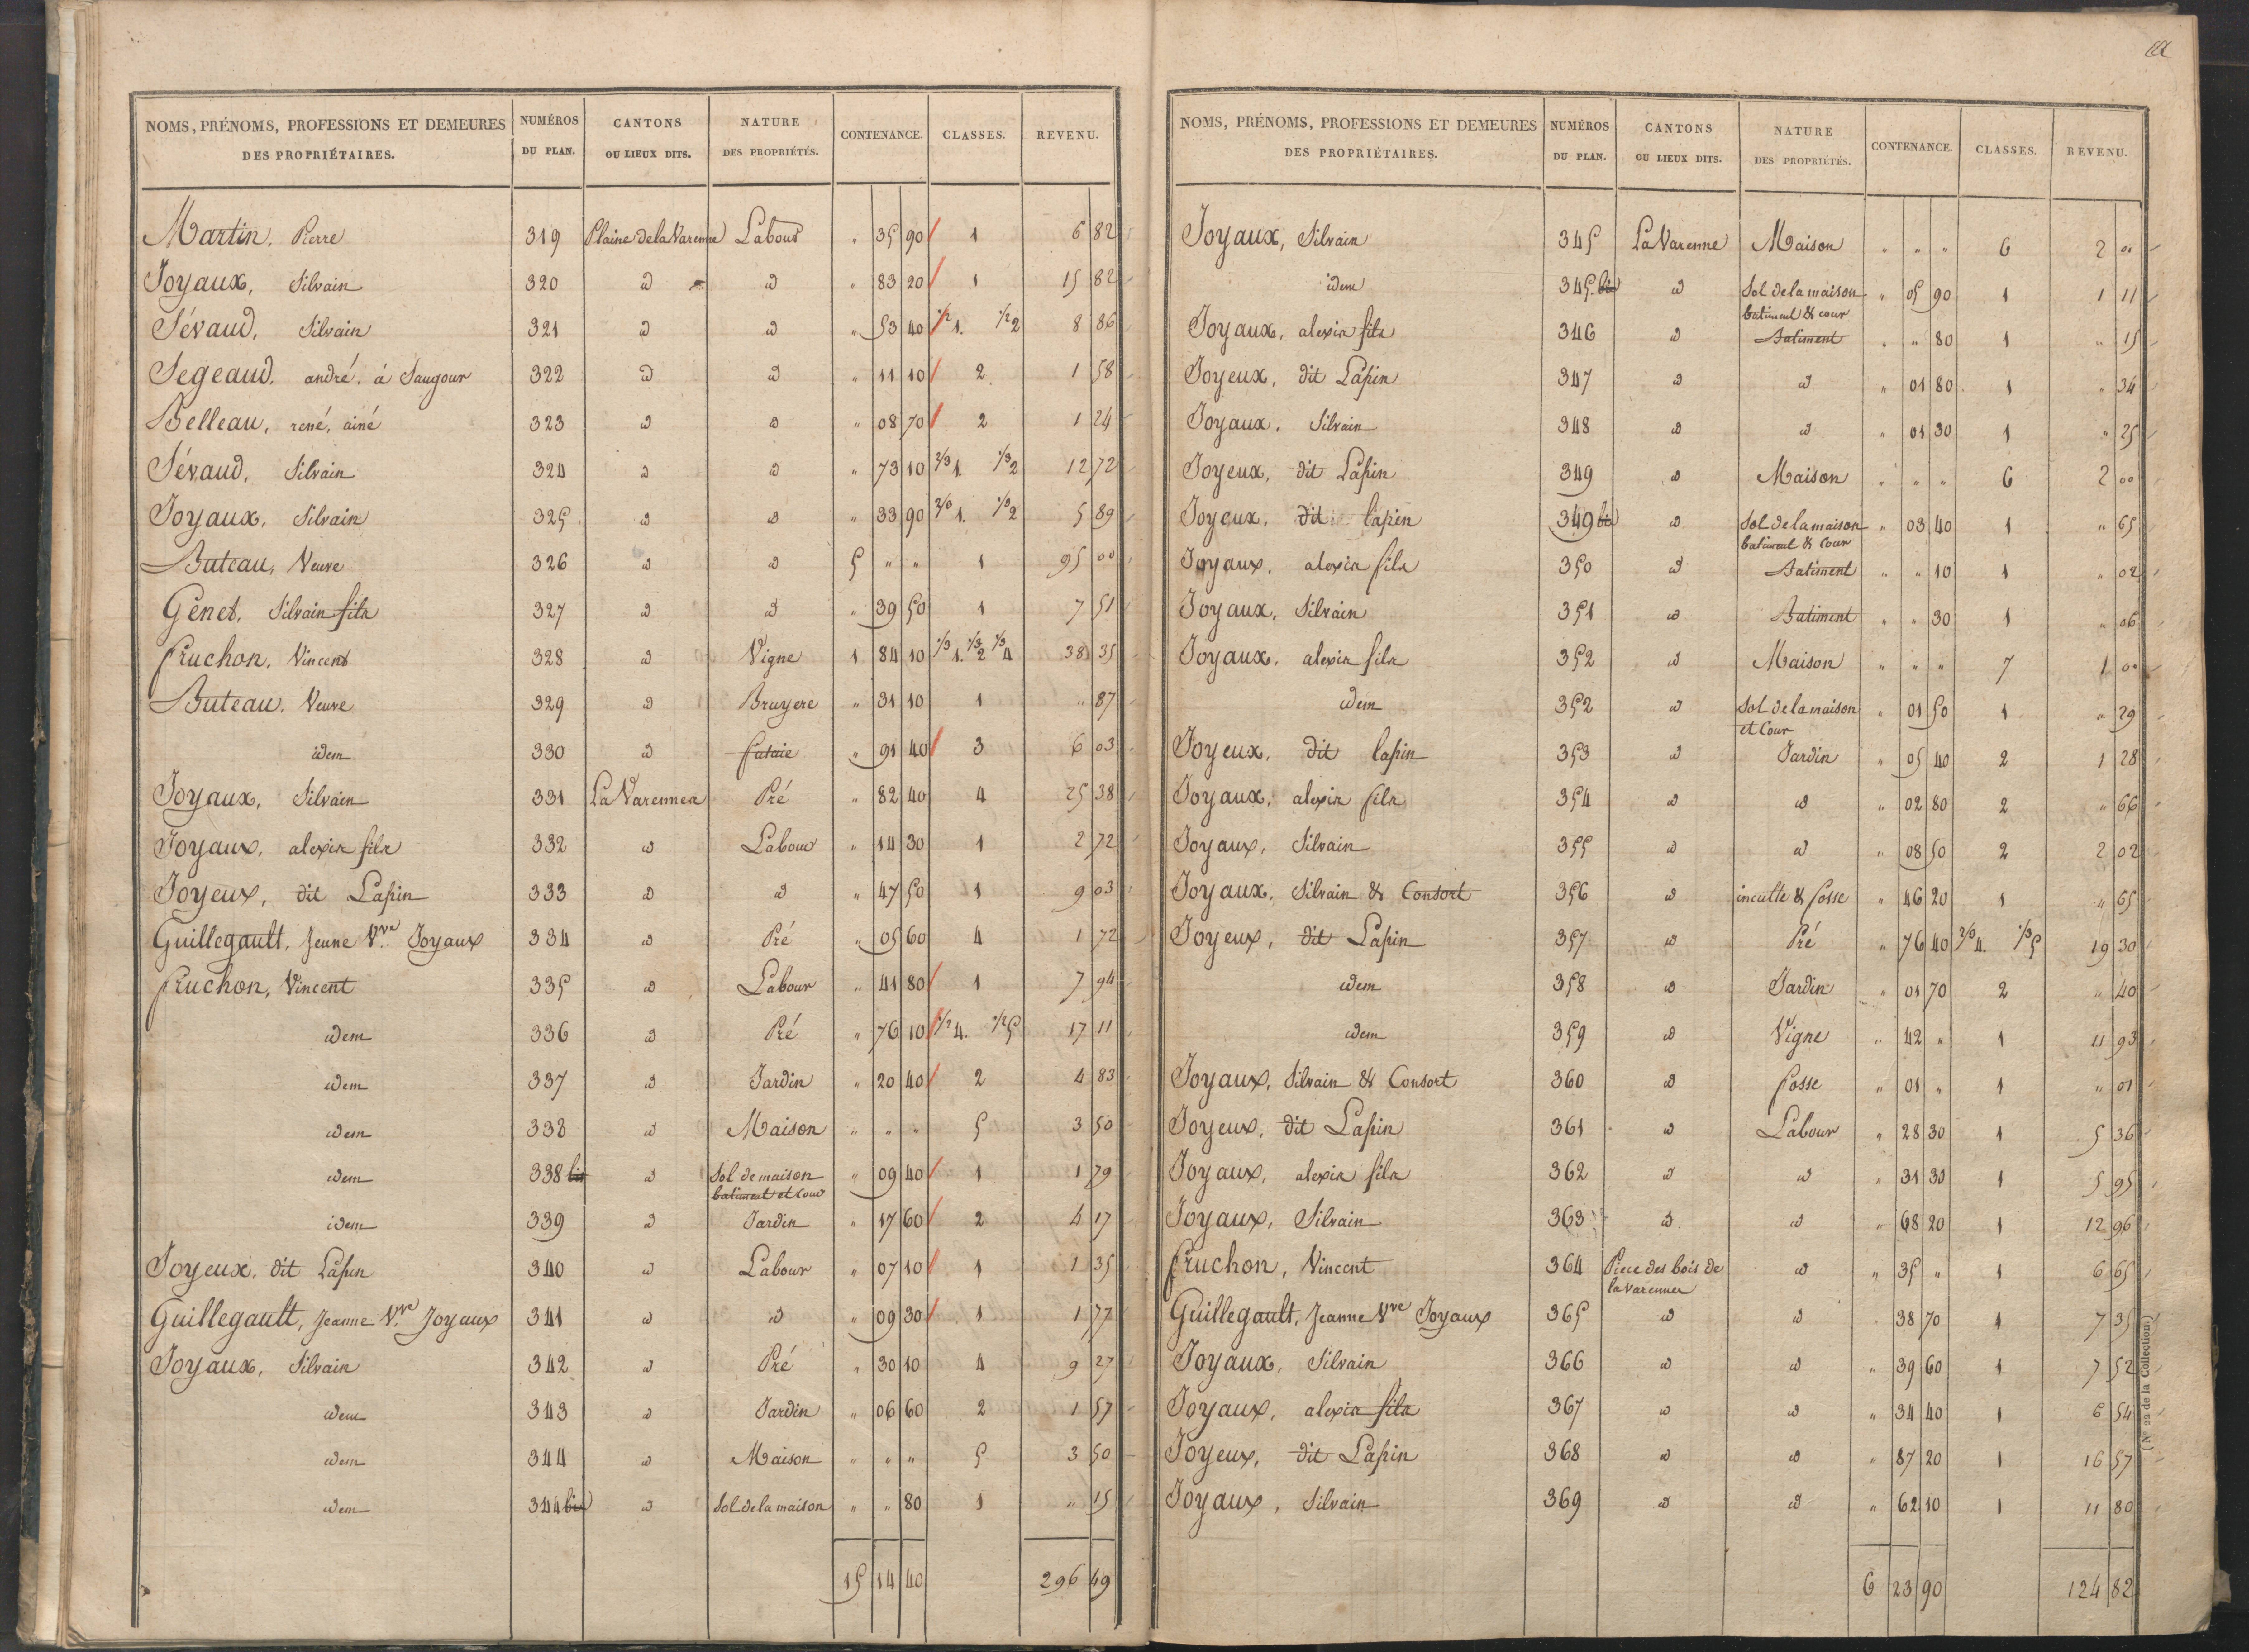 NOMS, PRÉNOMS, PROFESSIONS ET DEMEURES DES PROPRIÉTAIRES. NUMÉROS DU PLAN. CANTONS OU LIEUX DITS. NATURE DES PROPRIÉTÉS. CONTENANCE. CLASSES. REVENU.
Martin, Pierre 319 Plaine de la Varenne Labour " 35 90 1 6 82
Joyaux, Silvain 320 id id " 83 20 1 15 82
Sévaud, Silvain 321 id id " 53 40 1/2 1. 1/2 2 8 86
Segeaud, andré, à Saugour 322 id id " 11 10 2 1 58
Belleau, rené, ainé 323 id id " 08 70 2 1 24
Sévaud, Silvain 324 id id " 73 10 2/3 1. 1/3 2 12 72
Joyaux, Silvain 325 id id " 33 90 2/3 1. 1/3 2 5 89
Buteau, Veuve 326 id id 5 " " 1 95 00
Genet, Silvain fils 327 id id " 39 50 1 7 51
Fruchon, Vincent 328 id Vigne 1 84 10 1/3 1. 1/3 2 1/3 4 38 35
Buteau, Veuve 329 id Bruyere " 31 10 1 " 87
idem 330 id futaie " 91 40 3 6 03
Joyaux, Silvain 331 La Varennes Pré " 82 40 4 25 38
Joyaux, alexis fils 332 id Labour " 14 30 1 2 72
Joyeux, dit Lapin 333 id id " 47 50 1 9 03
Guillegault, Jeune Vve Joyaux 334 id Pré " 05 60 4 1 72
Fruchon, Vincent 335 id Labour " 41 80 1 7 94
idem 336 id Pré " 76 10 1/2 4. 1/2 5 17 11
idem 337 id Jardin " 20 40 2 4 83
idem 338 id Maison " " " 5 3 50
idem 338 bis id Sol de maison " 09 40 1 1 79
batiment et cour
idem 339 id Jardin " 17 60 2 4 17
Joyeux, dit Lapin 340 id Labour " 07 10 1 1 35
Guillegault, Jeanne Vve Joyaux 341 id id " 09 30 1 1 77
Joyaux, Silvain 342 id Pré " 30 10 4 9 27
idem 343 id Jardin " 06 60 2 1 57
idem 344 id Maison " " " 5 3 50
idem 344 bis id Sol de la maison " " 80 1 " 15
15 14 40 296 49
NOMS, PRÉNOMS, PROFESSIONS ET DEMEURES DES PROPRIÉTAIRES. NUMÉROS DU PLAN. CANTONS OU LIEUX DITS. NATURE DES PROPRIÉTÉS. CONTENANCE. CLASSES. REVENU.
Joyaux, Silvain 345 La Varenne Maison " " " 6 2 00
idem 345 bis id Sol de la maison " 05 90 1 1 11
batiment & cour
Joyaux, alexis fils 346 id Batiment " " 80 1 " 15
Joyeux, dit Lapin 347 id id " 01 80 1 " 34
Joyaux, Silvain 348 id id " 01 30 1 " 25
Joyeux, dit Lapin 349 id Maison " " " 6 2 00
Joyeux, dit lapin 349 bis id Sol de la maison " 03 40 1 " 65
batiment & Cour
Joyaux, alexis fils 350 id Batiment " " 10 1 " 02
Joyaux, Silvain 351 id Batiment " " 30 1 " 06
Joyaux, alexis fils 352 id Maison " " " 7 1 00
idem 352 id Sol de la maison " 01 50 1 " 29
et Cour
Joyeux, dit lapin 353 id Jardin " 05 40 2 1 28
Joyaux, alexis fils 354 id id " 02 80 2 " 66
Joyaux, Silvain 355 id id " 08 50 2 2 02
Joyaux, Silvain & Consort 356 id inculte & fosse " 46 20 1 " 65
Joyeux, dit Lapin 357 id Pré " 76 40 2/3 4. 1/3 5 19 30
idem 358 id Jardin " 01 70 2 " 40
idem 359 id Vigne " 42 " 1 11 93
Joyaux, Silvain & Consort 360 id fosse " 01 " 1 " 01
Joyeux, dit Lapin 361 id Labour " 28 30 1 5 36
Joyaux, alexis fils 362 id id " 31 30 1 5 95
Joyaux, Silvain 363 id id " 68 20 1 12 96
Fruchon, Vincent 364 Piece des bois de id " 35 " 1 6 65
la varennes
Guillegault, Jeanne Vve Joyaux 365 id id 38 70 1 7 35
Joyaux, Silvain 366 id id " 39 60 1 7 52
Joyaux, alexis fils 367 id id " 34 40 1 6 54
Joyeux, dit Lapin 368 id id " 87 20 1 16 57
Joyaux, Silvain 369 id id " 62 10 1 11 80
6 23 90 124 82
(No 22 de la Collection.)